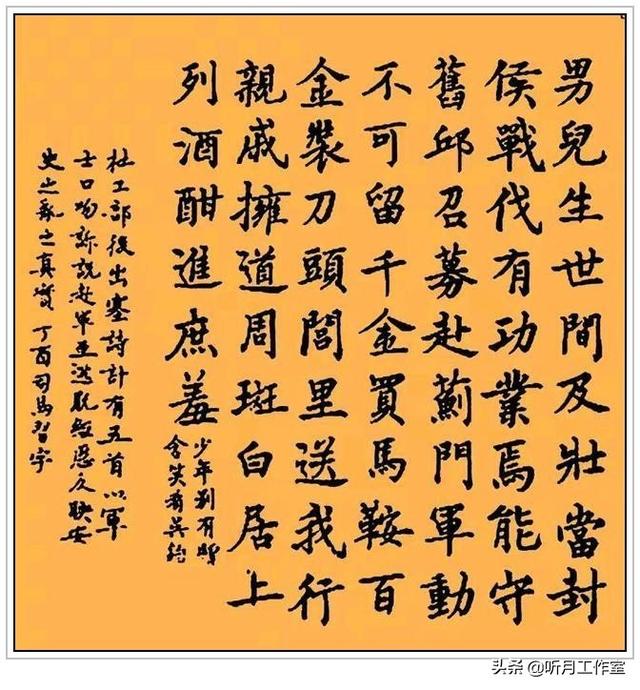 男兒生世間及壯當封
侯戰伐有功業焉能守
舊邱召募赴薊門軍動
不可留千金買馬鞍百
金裝刀頭閭里送我行
親戚擁道周斑白居上
列酒酣進庶羞
少年别有贈
含笑看吳鉤
杜工部後出塞詩計有五首以軍
士口吻訴說赴軍至逃脫經歷反映安
史之亂之真實 丁酉司馬習字
头条 @听月工作室